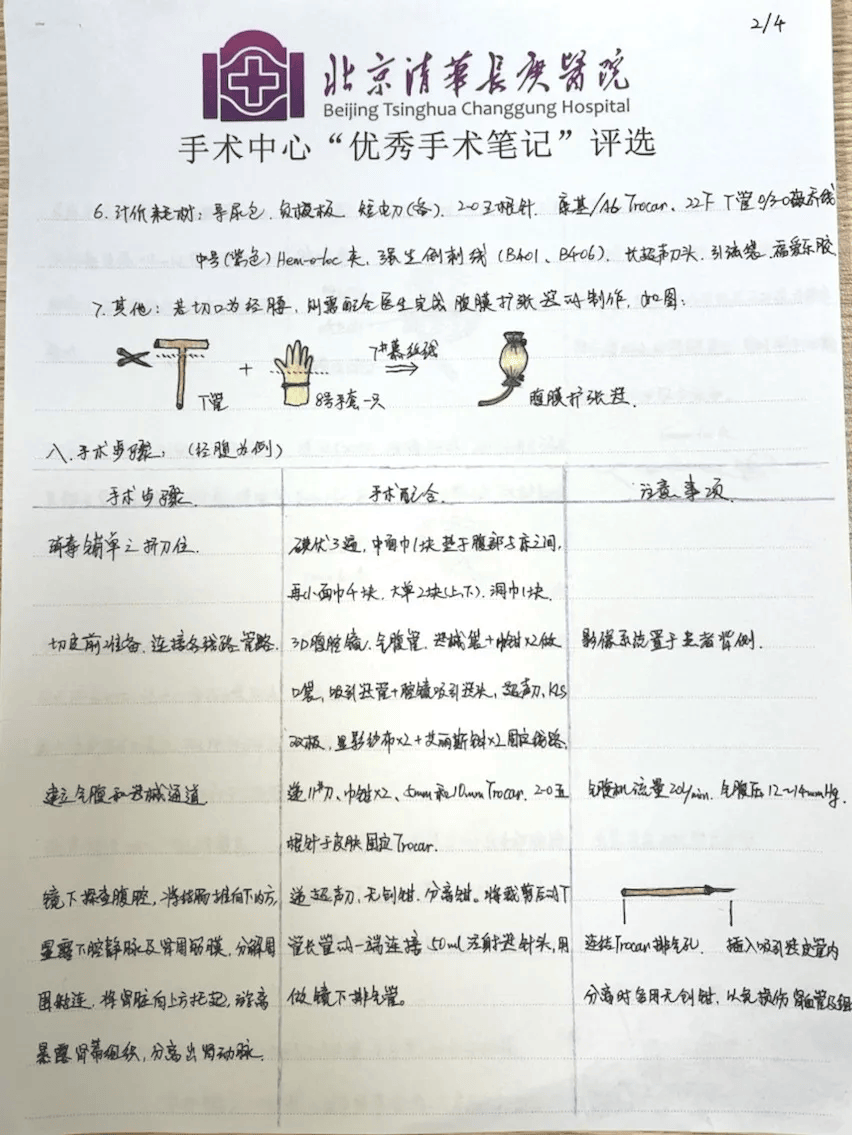 2/4
北京清華長庚醫院
Beijing Tsinghua Changgung Hospital
手术中心“优秀手术笔记”评选
6. 计价耗材：导尿包、负极板、短电刀(备)、2-0五根针、康基/A6 Trocar、22F T管 0/3-0薇乔线
中号(紫色) Hem-o-loc夹、强生倒刺线(B401、B406)、长超声刀头、引流袋、福爱乐胶
7. 其他：若切口为经腰，则需配合医生完成腹膜扩张器的制作，如图：
T管
+
8号手套一只
7#慕丝线
腹膜扩张器.
八、手术步骤：(经腹为例)
手术步骤
手术配合
注意事项
消毒铺单之折刀位.
碘伏3遍，中面巾1块垫于腹部与床之间，
再小面巾4块、大单2块(上下)、洞巾1块.
切皮前准备、连接各线路管路.
3D腹腔镜、气腹管、器械袋+巾钳×2做
口袋，吸引器管+腔镜吸引器头，超声刀、KLS
双极，显影纱布×2+艾丽斯钳×2固定线路.
影像系统置于患者背侧.
建立气腹和器械通道
递11#刀、巾钳×2、5mm和10mm Trocar、2-0五
根针于皮肤固定Trocar.
气腹机流量20L/min、气腹压12~14mmHg.
镜下探查腹腔，将结肠推向下内方，
显露下腔静脉及肾周筋膜，分解周
围粘连，将肾脏向上方托起，游离
暴露肾蒂组织，分离出肾动脉.
递超声刀、无创钳、分离钳。将裁剪后的T
管长管的一端连接50ml注射器针头，用
做镜下排气管。
连结Trocar排气孔.
插入吸引器皮管内
分离时多用无创钳，以免损伤肾血管及组